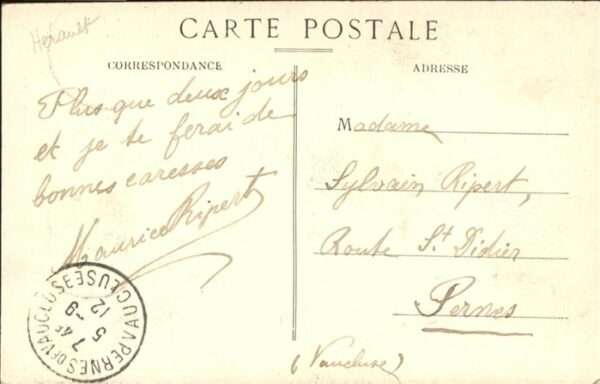 Hérault
CARTE POSTALE
CORRESPONDANCE
Plus que deux jours
et je te ferai de
bonnes caresses
Maurice Ripert
ADRESSE
Madame
Sylvain Ripert,
Route St Didier
Pernes
(Vaucluse)
PERNES
VAUCLUSE
7 45
5 -9
12